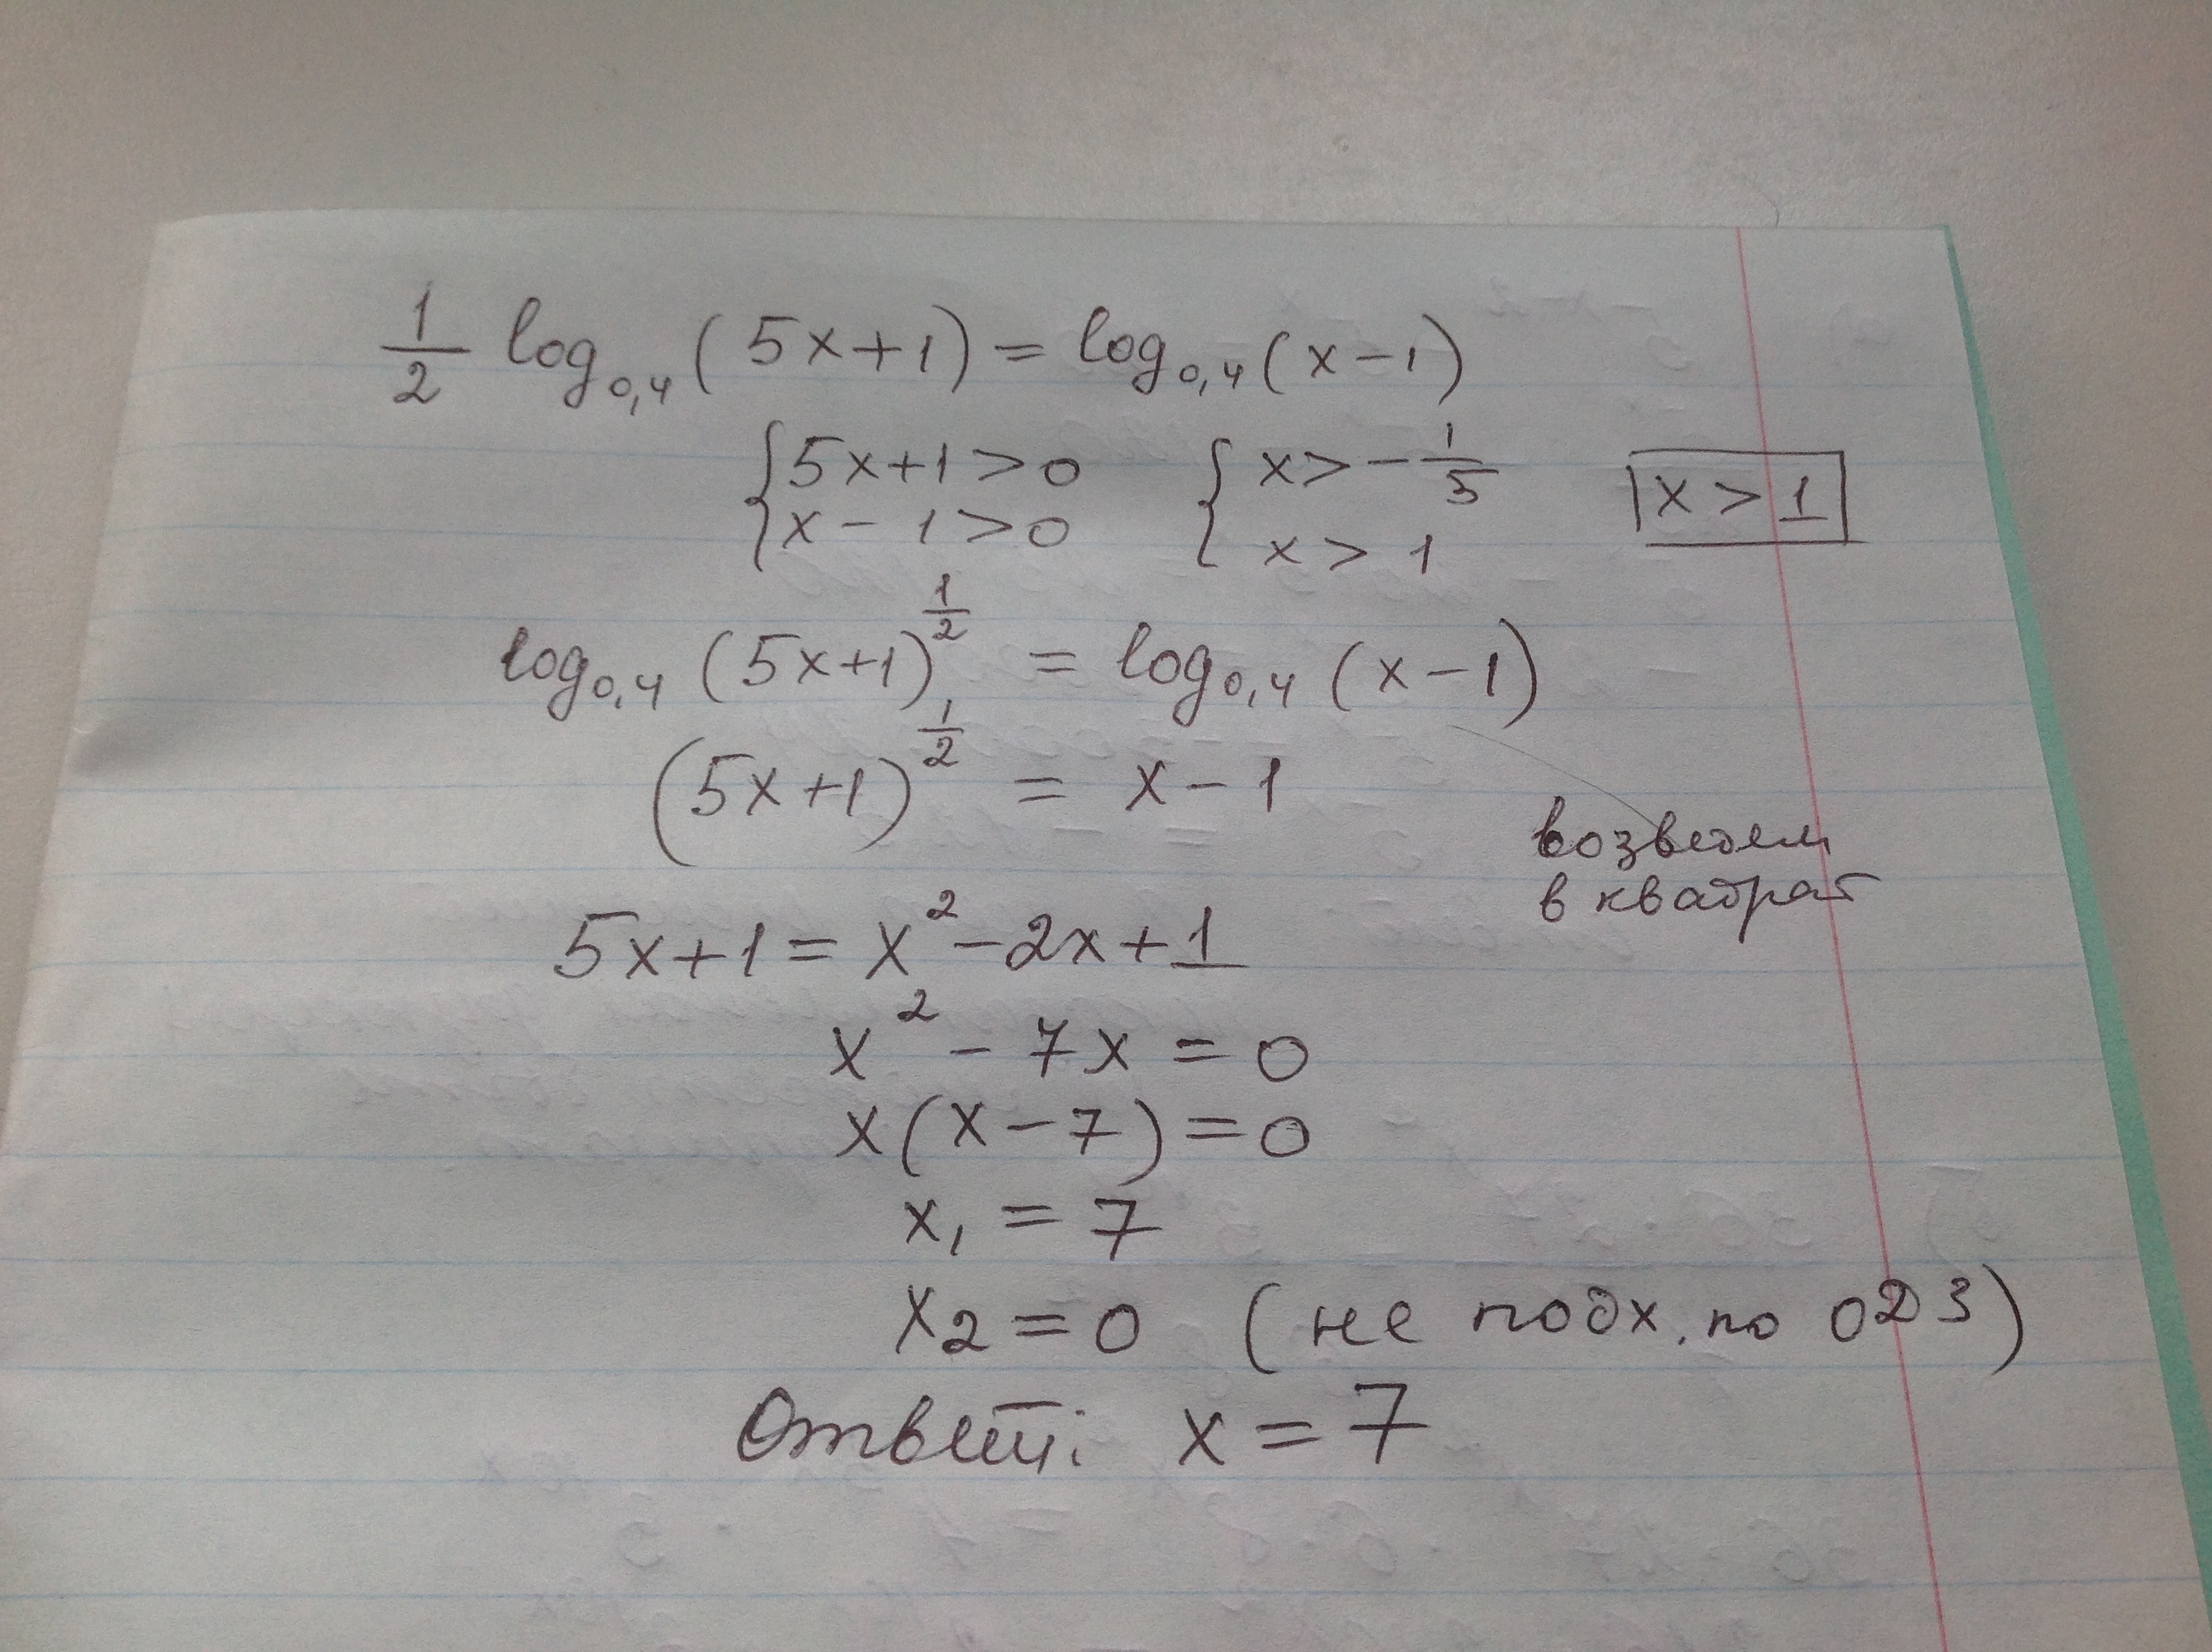 1/2 log₀,₄(5x+1) = log₀,₄(x-1)
{5x+1>0 {x>-1/5 x>1
{x-1>0 {x>1
log₀,₄(5x+1)^(1/2) = log₀,₄(x-1)
(5x+1)^(1/2) = x-1
возведем
в квадрат
5x+1 = x²-2x+1
x²-7x=0
x(x-7)=0
x₁=7
x₂=0 (не подх. по ОДЗ)
Ответ: x=7